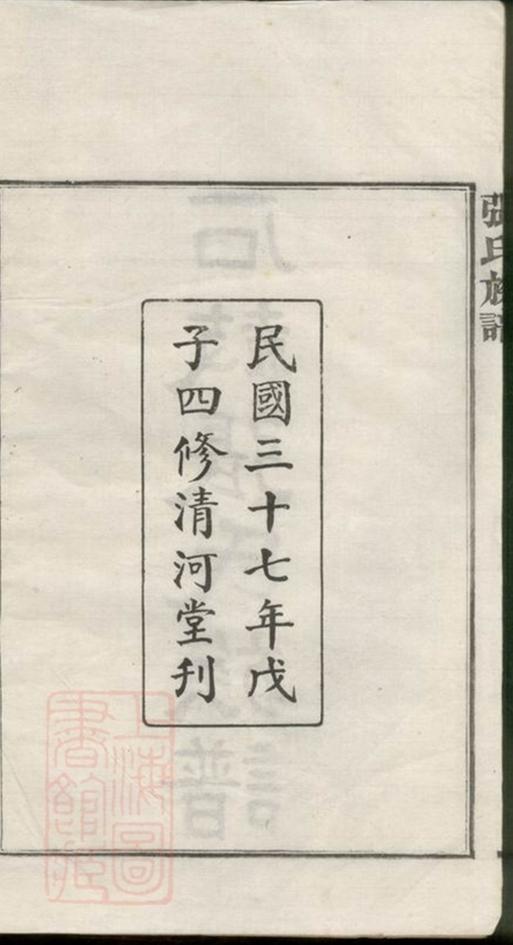 張氏族譜
民國三十七年戊
子四修清河堂刊
上海圖
書館藏